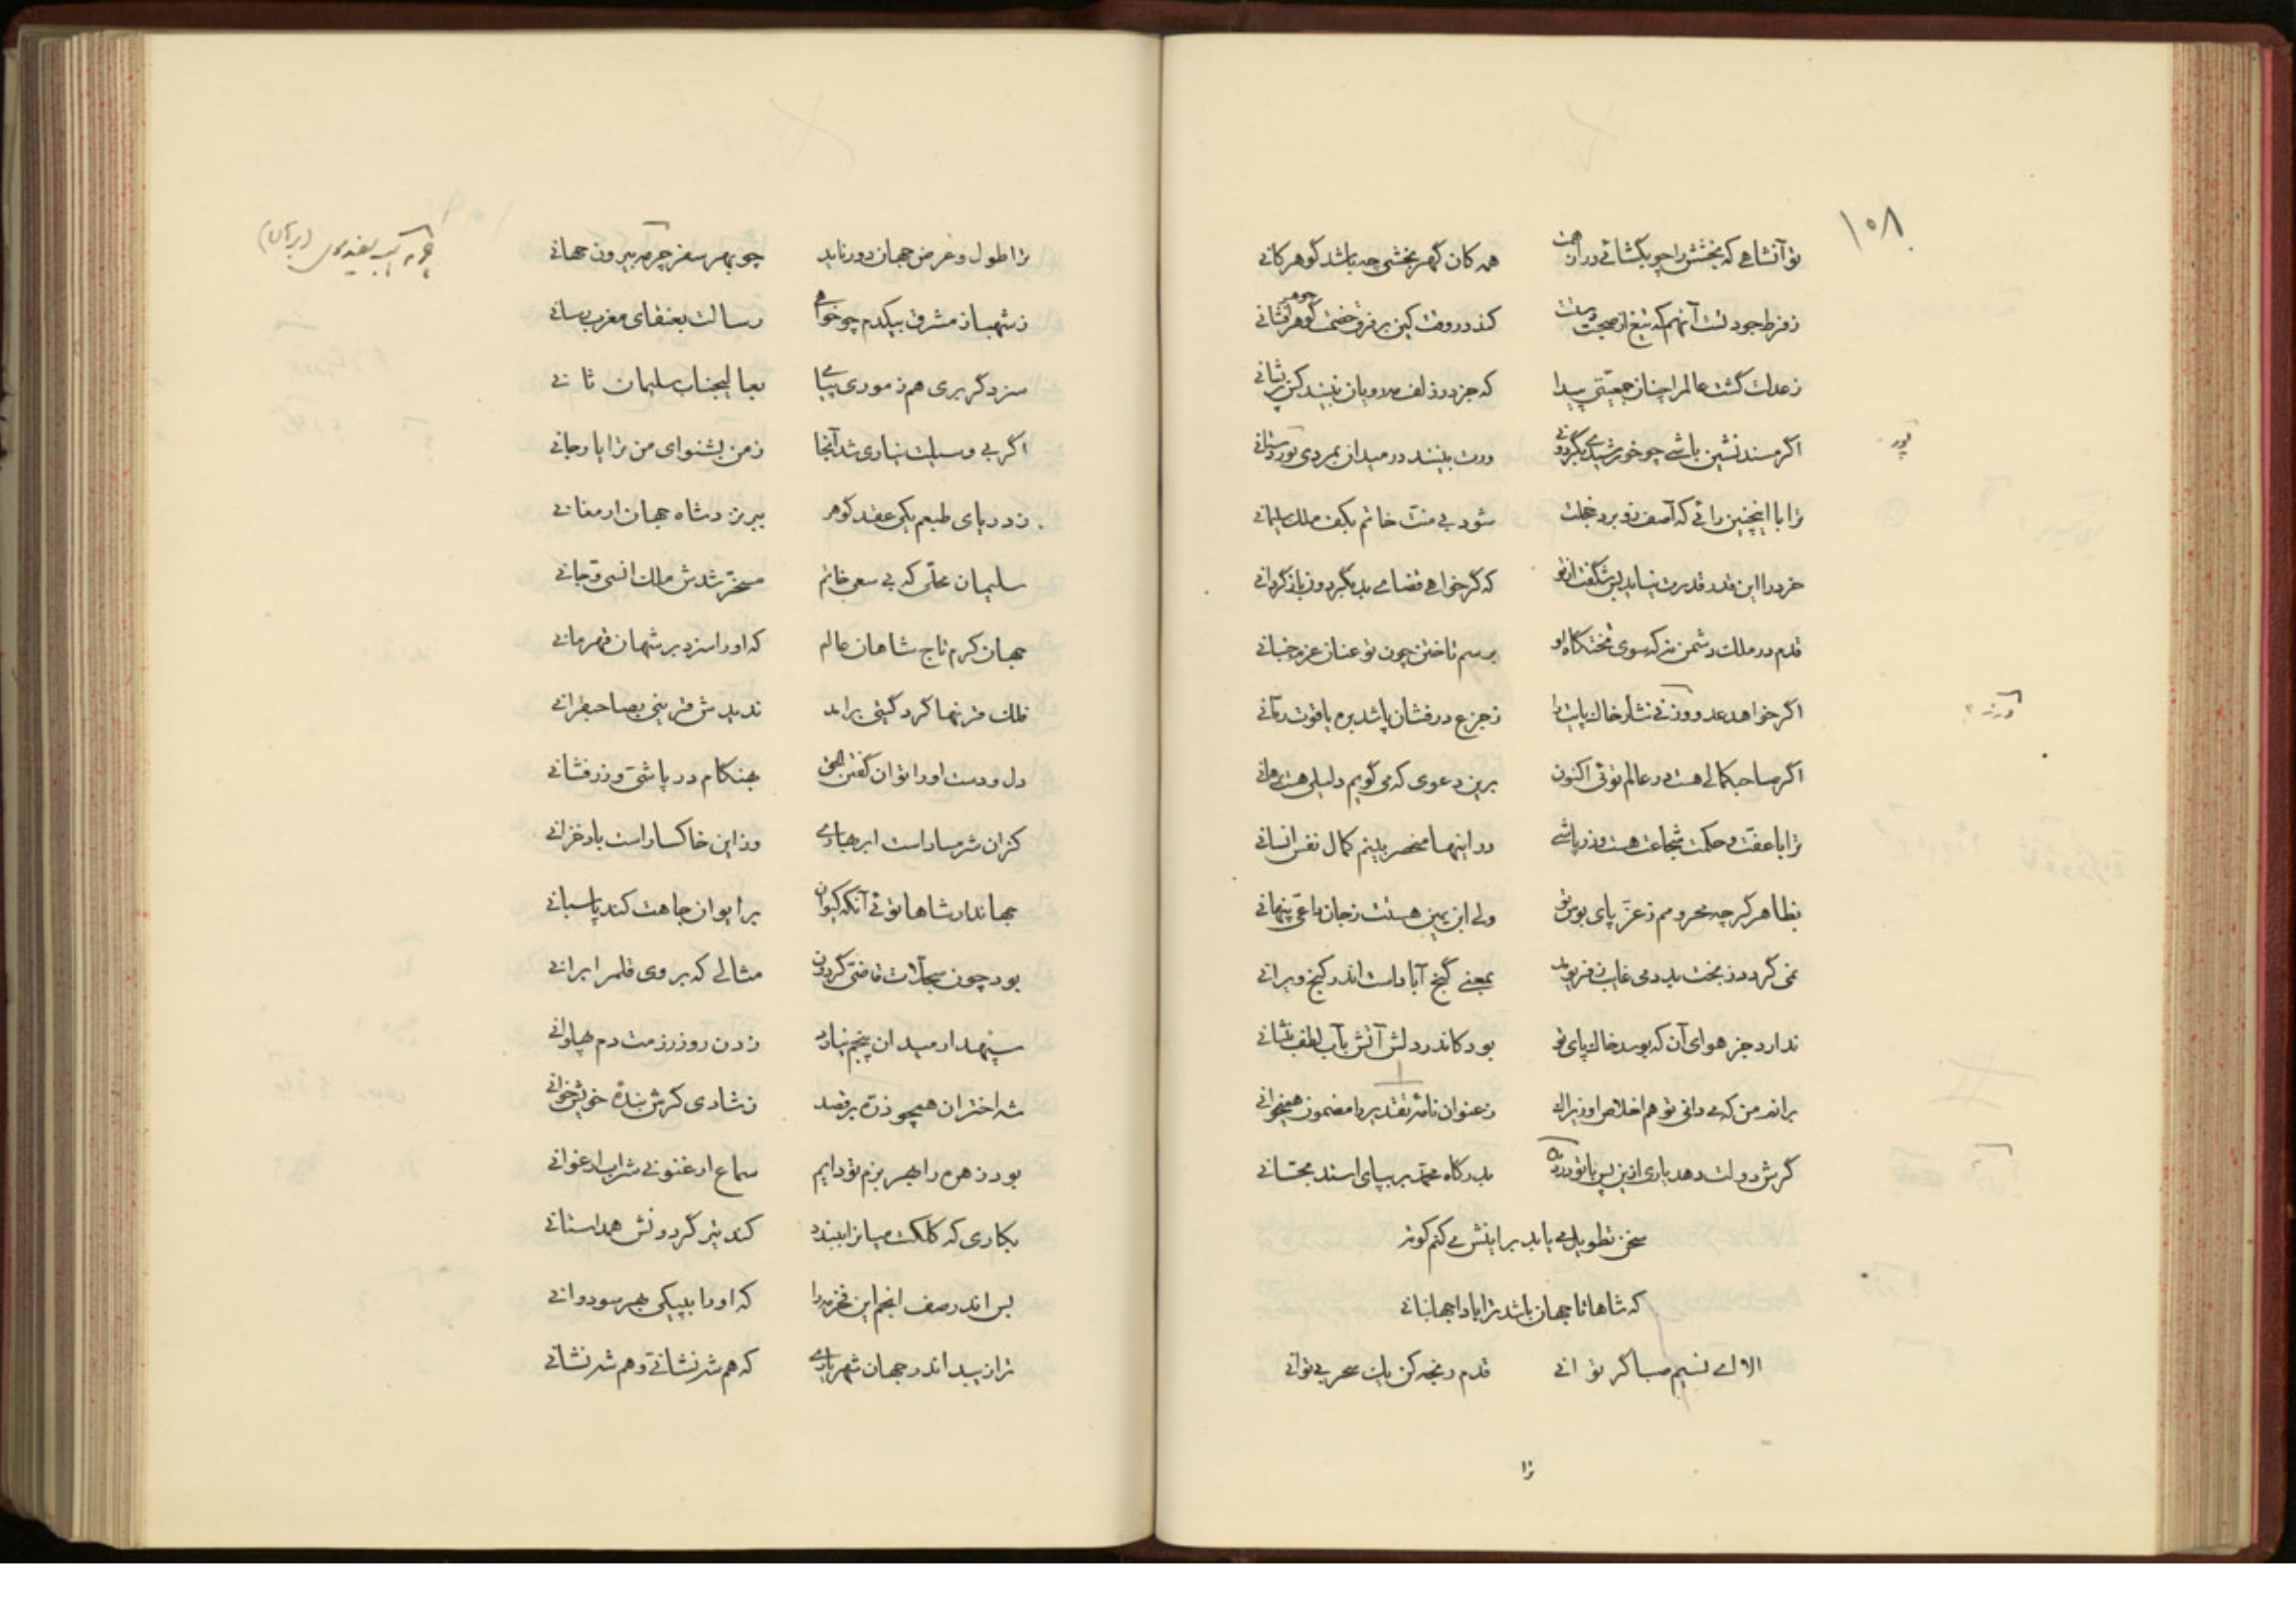 ۱۰۸
تو آنشاهی که بخشش را چو بگشائی در از همت همه کان گهر بخشی چه باشد گوهر کانی
ز فرط جود تست آنهم که تیغ از صحبت دستت کند در وقت کین بر فرق خصمت گوهر افشانی
جوهر
ز عدلت گشت عالم را چنان جمعیتی پیدا که جز در زلف مهرویان نبیند کس پریشانی
اگر مسند نشین باشی چو خورشیدی بگردونی ورت بینند در میدان بمردی پور دستانی
پور
ترا با اینچنین رائی که آصف زو برد خجلت شود بی منت خاتم بکف ملک سلیمانی
خرد را این قدر قدرت نیاید بس شگفت از تو که گر خواهی قضای بد بگردون باز گردانی
قدم در ملک دشمن نه که سوی تختگاه او برسم تاختن چون تو عنان عزم جنبانی
اگر خواهد عدو وزنی نثار خاک پایت را ز جزع در فشان پاشد بره یاقوت رمانی
اگر صاحبکمالی هست در عالم توئی اکنون برین دعوی که می گویم دلیلی هست برهانی
ترا با عفت و حکمت شجاعت هست و زر پاشی در اینها منحصر بینم کمال نفس انسانی
بظاهر گر چه محرومم ز عز پای بوس تو ولی ابن یمین هستت ز جان داعی پنهانی
نمی گردد ز بخت بد دمی غایب ز فر تو بمعنی گنج آبادست اندر کنج ویرانی
ندارد جز هوای آن که بوسد خاک پای تو بود کاندر دلش آتش بآب لطف بنشانی
بر اندر من که می دانی تو هم اخلاص او زیرا که ز عنوان نامه تقدیر را مضمون همیخوانی
گرش دولت دهد یاری ازین پس با تو در بدرگاه محمد بر بپای استد بحسّانی
سخن تطویل می یابد برینش می کنم کوته
که شاها تا جهان باشد ترا بادا جهانبانی
الا ای نسیم صبا گر توانی قدم رنجه کن یک سحر بی توانی
ترا
ترا طول و عرض جهان دور ناید چو بهر سفر چرمه بیرون جهانی
ز شهباز مشرق بیکدم چو خواهی رسالت بعنقای مغرب رسانی
سزد گر بری هم ز موری پیامی بعالیجناب سلیمان ثانی
اگر بی وسیلت نیاری شد آنجا ز من بشنو ای من ترا یار جانی
ز دریای طبعم یکی عقد گوهر ببر نزد شاه جهان ارمغانی
سلیمان محلی که بی سعی خاتم مسخر شدش ملک انسی و جانی
جهان کرم تاج شاهان عالم که او را سزد بر شهان قهرمانی
فلک قرنها گرد گیتی برآمد ندیدش قرینی بصاحبقرانی
دل و دست او را توان گفتن الحق بهنگام در پاشی و زر فشانی
کزان شرمسار است ابر بهاری وزاین خاکسار است باد خزانی
جهاندار شاها توئی آنکه کیوان بر ایوان جاهت کند پاسبانی
بود چون سجلات قاضی گردون مثالی که بر وی قلم را برانی
سپهدار میدان پنجم نیارد زدن روز رزمت دم پهلوانی
شه اختران همچو ذره برقصد ز شادی گرش بنده خویش خوانی
بود زهره را بهر بزم تو دایم سماع ارغنونی شراب ارغوانی
بکاری که کلکت میان را ببندد کند تیر گردونش همداستانی
بس اندر صف انجم این فخر مه را که او را بپیکی بهر سو دوانی
تراز پیبد اندر جهان شهریاری که هم شه نشانی و هم شه نشانی